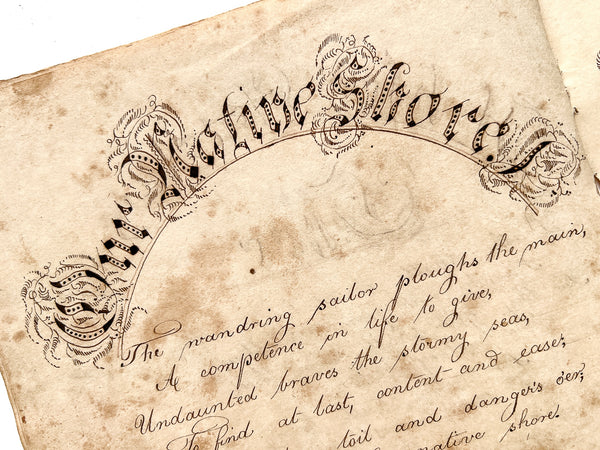 Our Native Shore
The wandring sailor ploughs the main,
A competence in life to give,
Undaunted braves the stormy seas,
To find at last, content and ease;
toil and danger's o'er,
native shore.